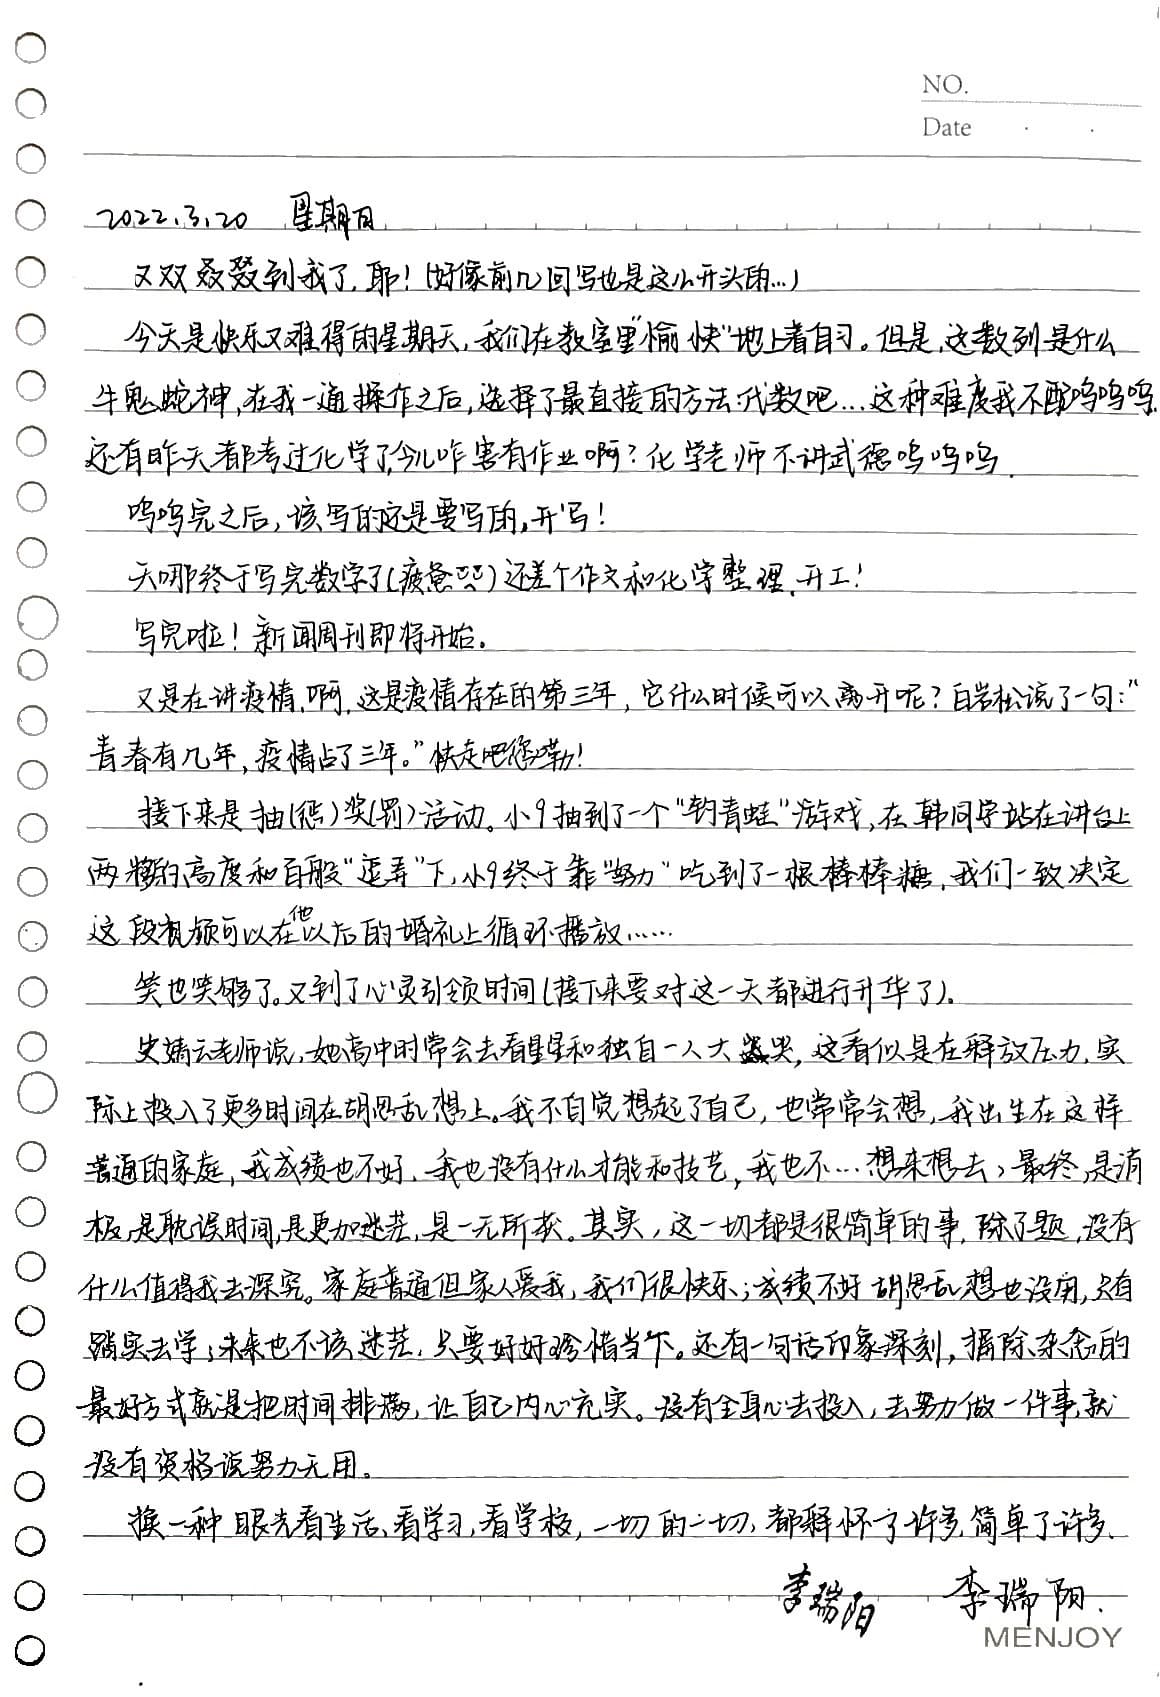 NO.
Date
2022.3.20 星期日
又双叒叕到我了,耶!(好像前几回写也是这么开头的...)
今天是快乐又难得的星期天,我们在教室里“愉快”地上着自习。但是,这数列是什么
牛鬼蛇神,在我一通操作之后,选择了最直接的方法代数吧...这种难度我不配呜呜呜.
还有昨天都考过化学了,今儿咋害有作业啊?化学老师不讲武德呜呜呜.
呜呜完之后,该写的还是要写的,开写!
天哪终于写完数学了(疲惫)还差个作文和化学整理,开工!
写完啦!新闻周刊即将开始。
又是在讲疫情,啊,这是疫情存在的第三年,它什么时候可以离开呢?白岩松说了一句:“
青春有几年,疫情占了三年。”快走吧您嘞!
接下来是抽(惩)奖(罚)活动。小9抽到了一个“钓青蛙”游戏,在韩同学站在讲台上
两将的高度和百般“逗弄”下,小9终于靠“努力”吃到了一根棒棒糖,我们一致决定
这段视频可以在他以后的婚礼上循环播放......
笑也笑够了。又到了心灵引领时间(接下来要对这一天都进行升华了).
史婧云老师说,她高中时常会去看星星和独自一人大哭,这看似是在释放压力,实
际上投入了更多时间在胡思乱想上。我不自觉想起了自己,也常常会想,我出生在这样
普通的家庭,我成绩也不好,我也没有什么才能和技艺,我也不...想来想去,最终,是消
极,是耽误时间,是更加迷茫,是一无所获。其实,这一切都是很简单的事,除了题,没有
什么值得我去深究。家庭普通但家人爱我,我们很快乐;成绩不好胡思乱想也没用,只有
踏实去学;未来也不该迷茫,只要好好珍惜当下。还有一句话印象深刻,摒除杂念的
最好方式就是把时间排满,让自己内心充实。没有全身心去投入,去努力做一件事,就
没有资格说努力无用。
换一种眼光看生活,看学习,看学校,一切的一切,都释怀了许多,简单了许多.
李瑞阳 李瑞阳.
MENJOY